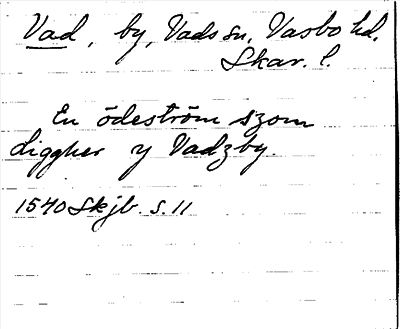 Vad, by, Vads sn, Vasbo hd.
Skar. l.
En ödeström szom
liggher y Vadzby.
1540 Skjb. S. 11